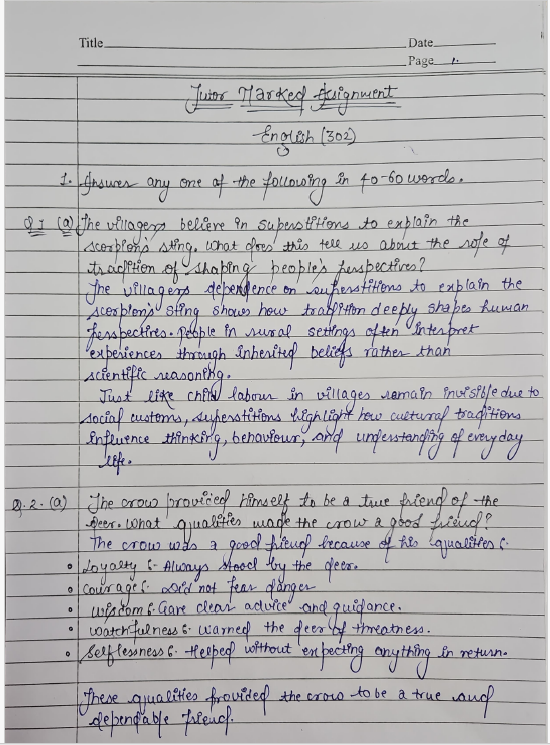 Title
Date
Page 1.
Tutor Marked Assignment
English (302)
1. Answer any one of the following in 40-60 words.
Q 1 (a) The villagers believe in superstitions to explain the
scorpion's sting. What does this tell us about the role of
tradition of shaping people's perspectives?
The villagers dependence on superstitions to explain the
scorpion's sting shows how tradition deeply shapes human
perspectives. People in rural settings often interpret
experiences through inherited beliefs rather than
scientific reasoning.
Just like child labour in villages remain invisible due to
social customs, superstitions highlight how cultural traditions
influence thinking, behaviour, and understanding of everyday
life.
Q.2.(a) The crow provicied himself to be a true friend of the
deer. What qualities made the crow a good friend?
The crow was a good friend because of his qualities :-
• Loyalty :- Always stood by the deer.
• Courage :- Did not fear danger
• wisdom :- Gave clear advice and guidance.
• watchfulness :- warned the deer of threatness.
• Selflessness :- Helped without expecting anything in return.
These qualities provided the crow to be a true and
dependable friend.